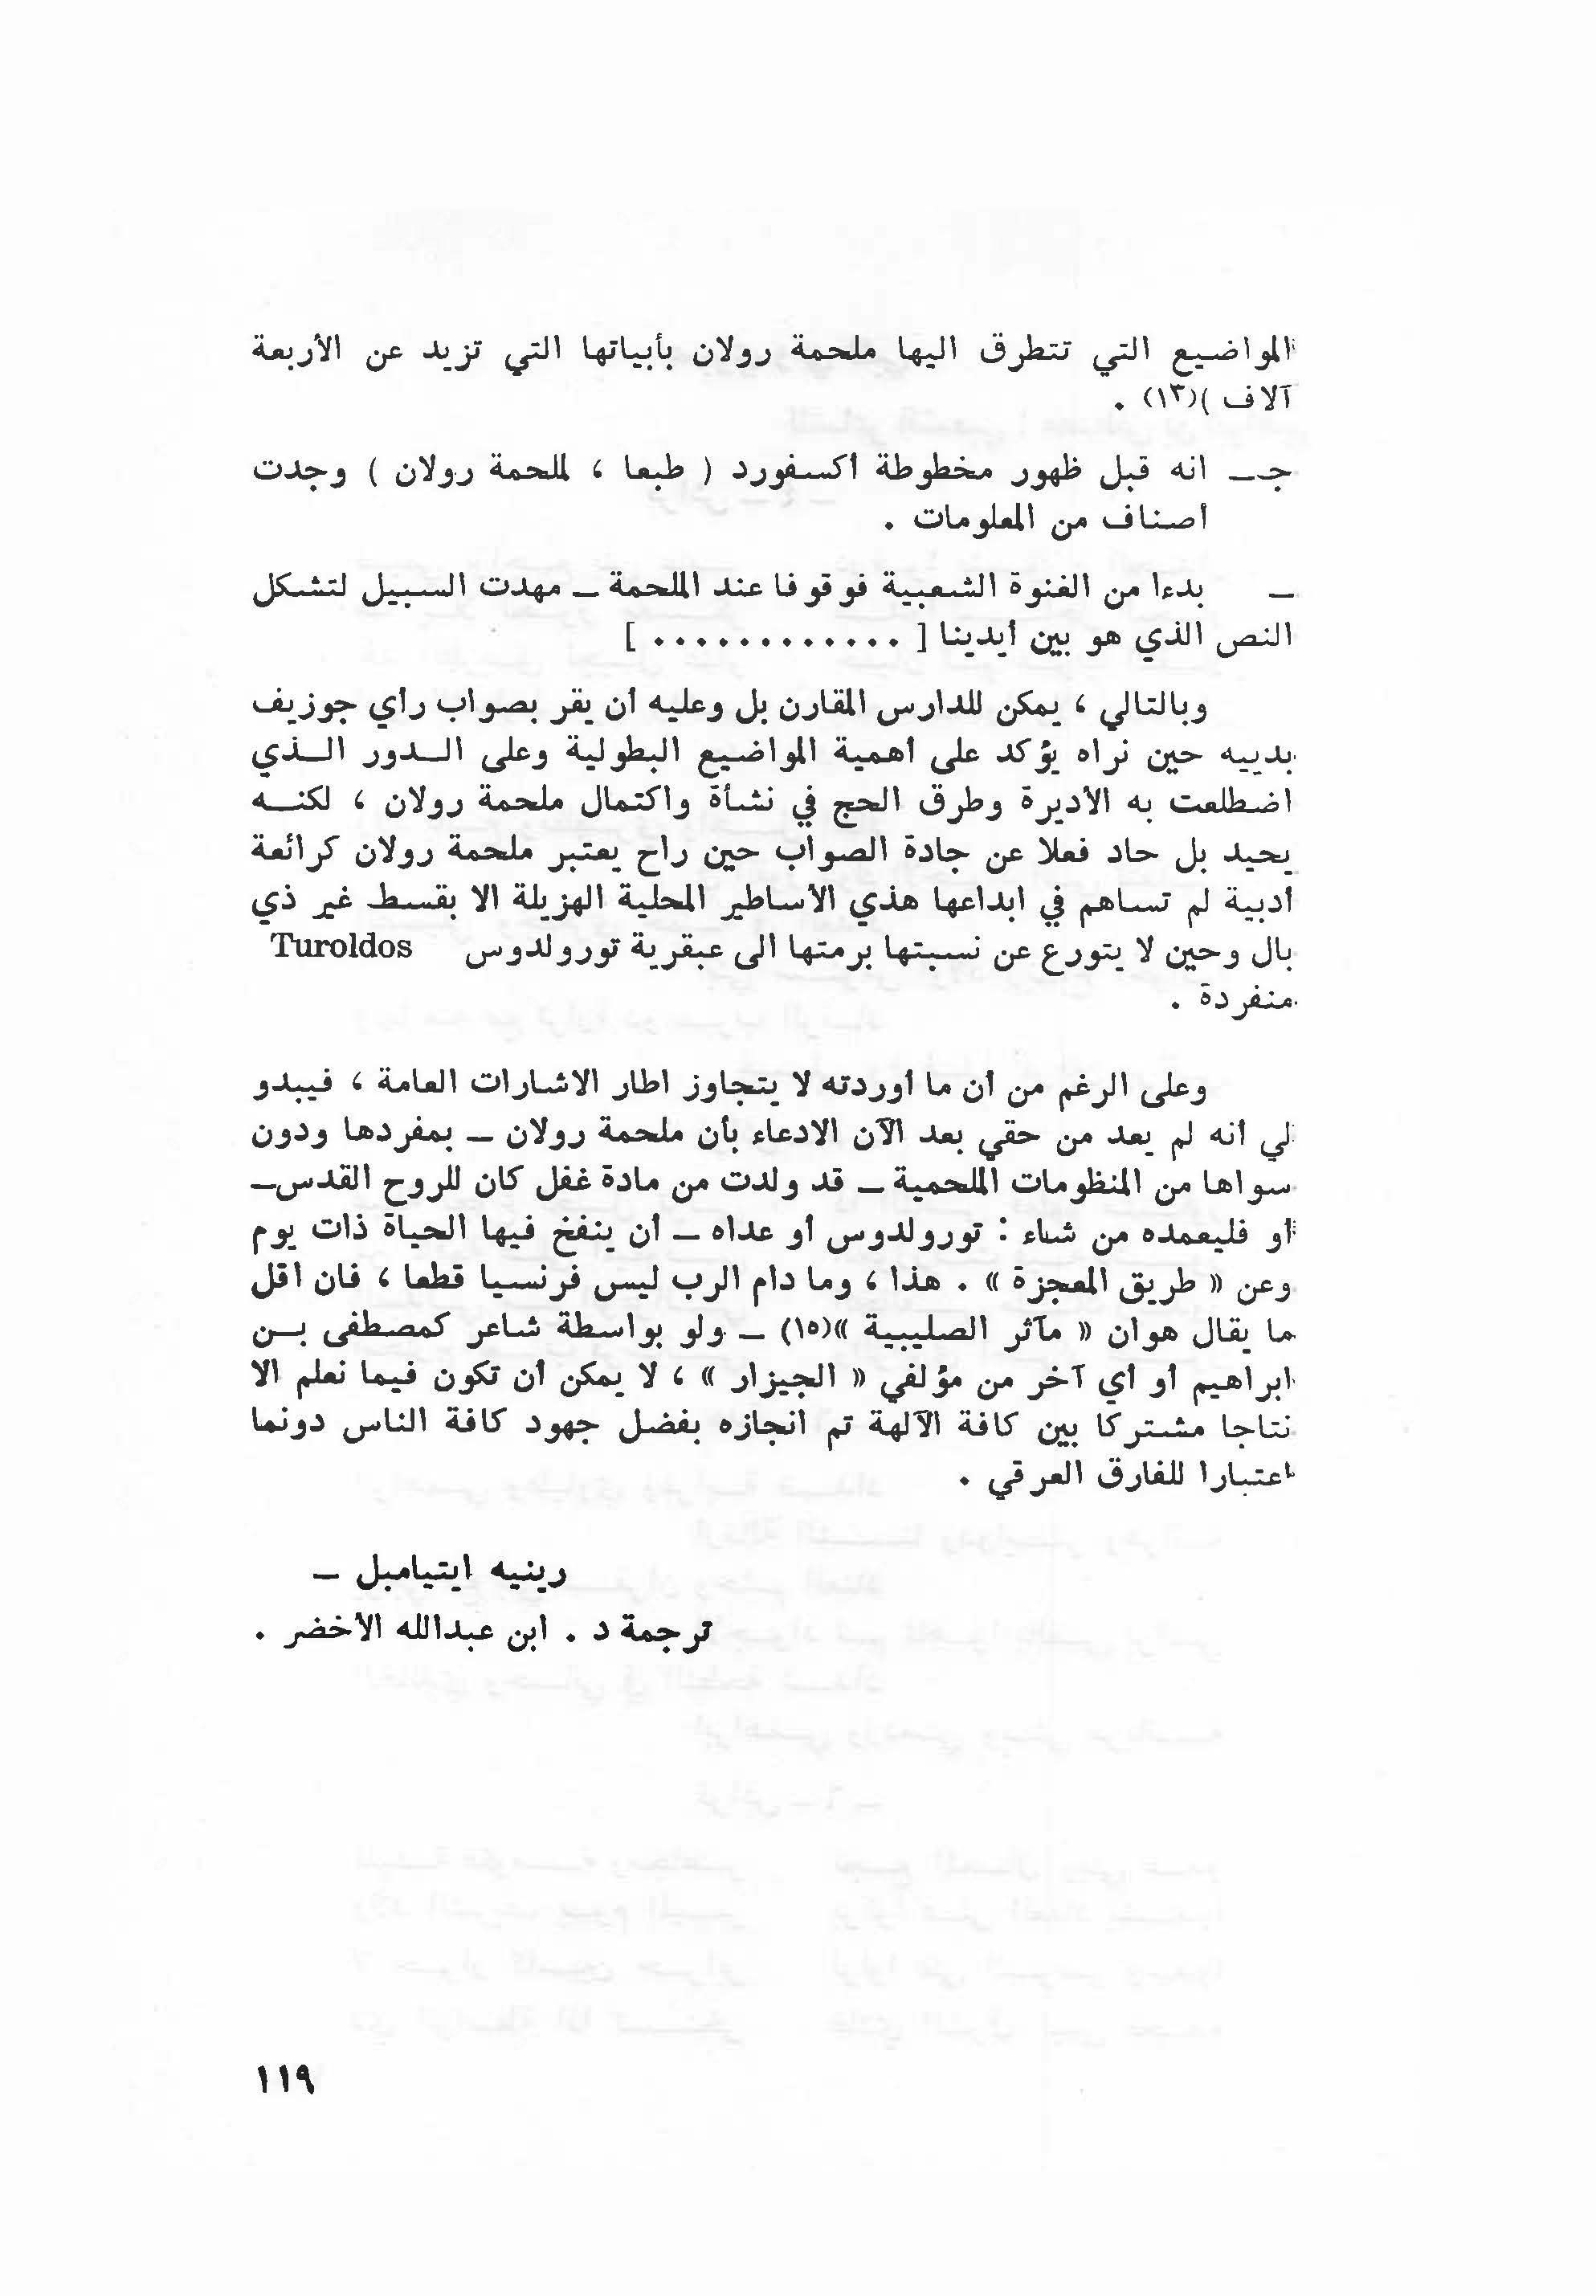 المواضيع التي تتطرق اليها ملحمة رولان بأبياتها التي تزيد عن الأربعة
آلاف )(١٣) .
جـ ـ انه قبل ظهور مخطوطة أكسفورد ( طبعا ، لملحمة رولان ) وجدت
أصناف من المعلومات .
ـ بدءا من الغنوة الشعبية فوقوفا عند الملحمة ـ مهدت السبيل لتشكل
النص الذي هو بين أيدينا [ ............ ]
وبالتالي ، يمكن للدارس المقارن بل وعليه أن يقر بصواب رأي جوزيف
بدييه حين نراه يؤكد على أهمية المواضيع البطولية وعلى الـدور الـذي
اضطلعت به الأديرة وطرق الحج في نشأة واكتمال ملحمة رولان ، لكنـه
يحيد بل حاد فعلا عن جادة الصواب حين راح يعتبر ملحمة رولان كرائعة
أدبية لم تساهم في ابداعها هذي الأساطير المحلية الهزيلة الا بقسط غير ذي
بال وحين لا يتورع عن نسبتها برمتها الى عبقرية تورولدوس Turoldos
منفردة .
وعلى الرغم من أن ما أوردته لا يتجاوز اطار الاشارات العامة ، فيبدو
لي أنه لم يعد من حقي بعد الآن الادعاء بأن ملحمة رولان ـ بمفردها ودون
سواها من المنظومات الملحمية ـ قد ولدت من مادة غفل كان للروح القدس ـ
أو فليعمده من شاء : تورولدوس أو عداه ـ أن ينفخ فيها الحياة ذات يوم
وعن « طريق المعجزة » . هذا ، وما دام الرب ليس فرنسيا قطعا ، فان أقل
ما يقال هوان « مآثر الصليبية »(١٥) ـ ولو بواسطة شاعر كمصطفى بـن
ابراهيم أو أي آخر من مؤلفي « الجيزار » ، لا يمكن أن تكون فيما نعلم الا
نتاجا مشتركا بين كافة الآلهة تم انجازه بفضل جهود كافة الناس دونما
اعتبارا للفارق العرقي .
رينيه ايتيامبل ـ
ترجمة د . ابن عبدالله الأخضر .
١١٩